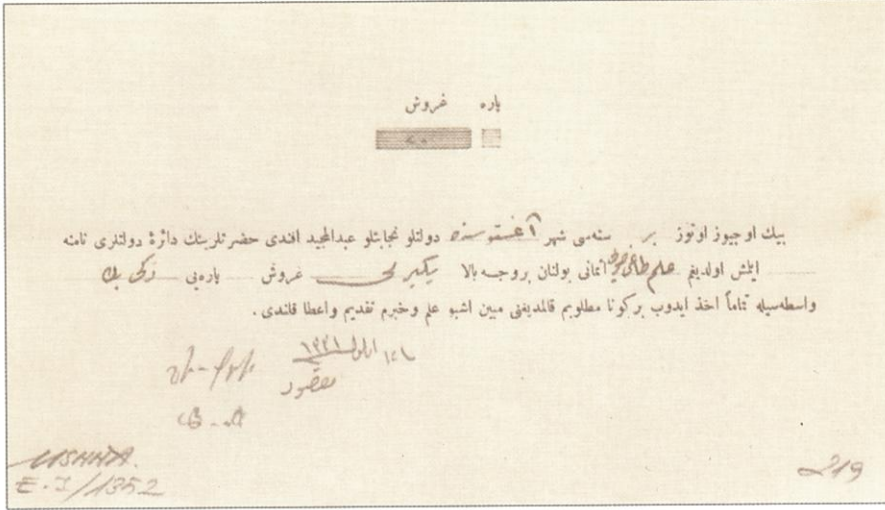 پاره غروش
بیك اوچیوز اوتوز بر سنه‌سی شهر آغستوسنده دولتلو نجابتلو عبدالمجید افندی حضرتلرینك دائرهٔ دولتلری نامنه
ایلمش اولدیغم اثمانی بولنان بروجه بالا یگیرمی غروش پاره‌یی زکی بك
واسطه‌سیله تماماً اخذ ایدوب بركونا مطلوبم قالمدیغنی مبین اشبو علم وخبرم تقدیم واعطا قلندی.
ایلول ١٣٣١
مقصود
E.I/1352
219